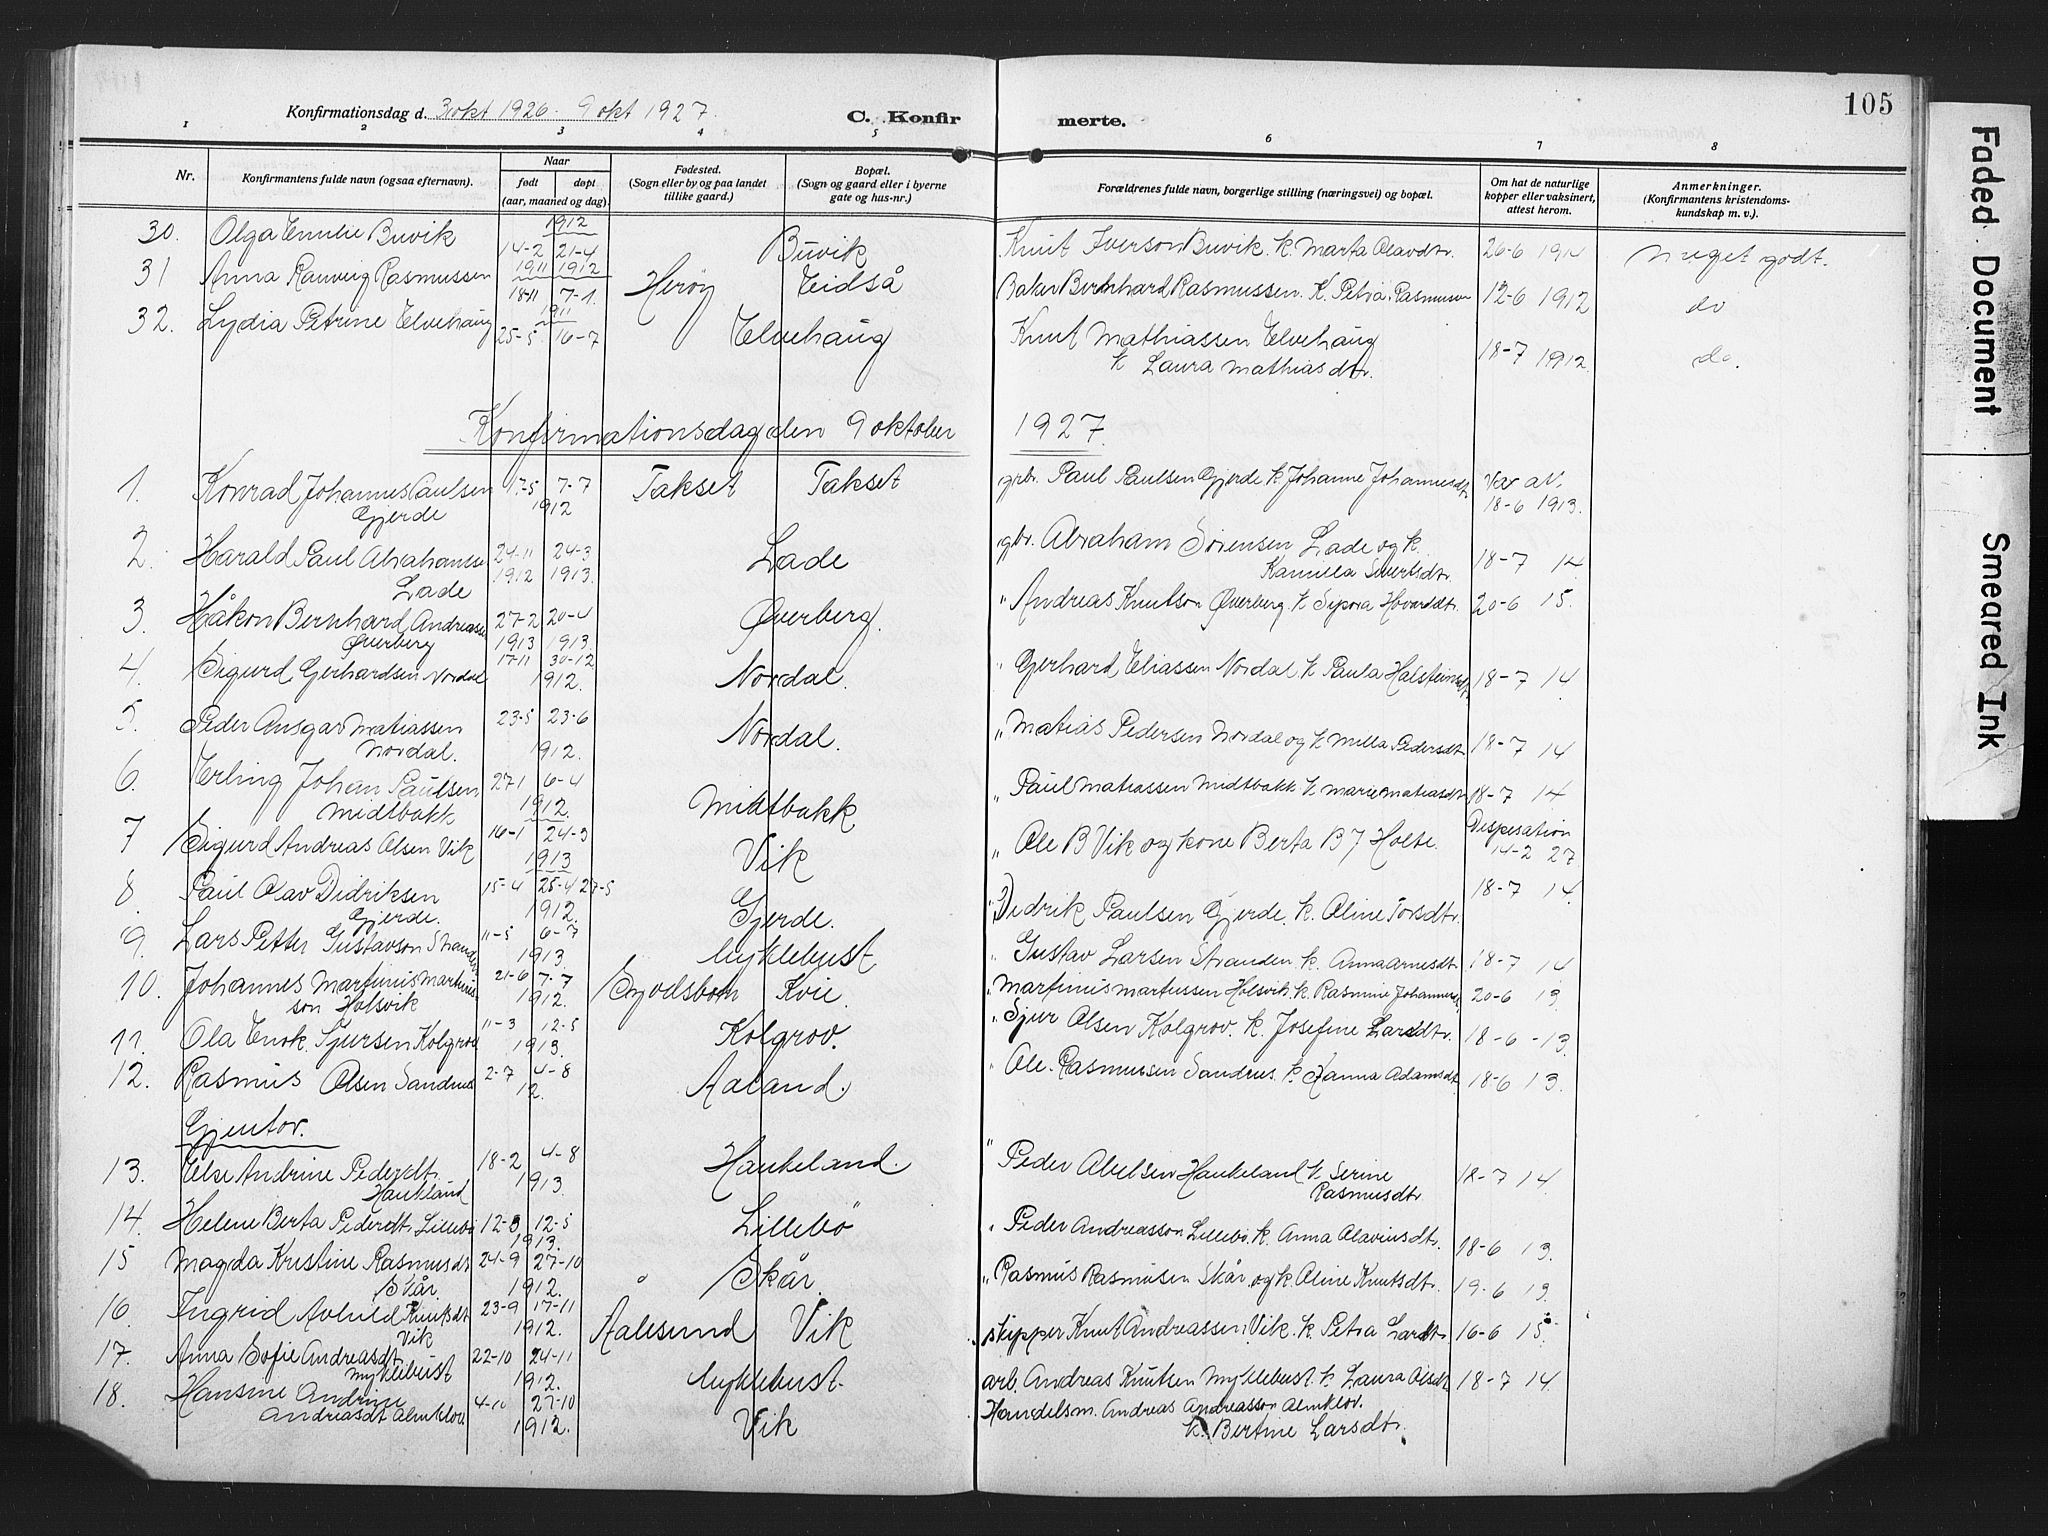 105
Konfirmationsdag d. 3 okt 1926 - 9 okt 1927.
C. Konfirmerte.
1 2 3 4 5 6 7 8
Nr.
Konfirmantens fulde navn (ogsaa efternavn).
Naar
født døpt
(aar, maaned og dag).
Fødested.
(Sogn eller by og paa landet
tillike gaard.)
Bopæl.
(Sogn og gaard eller i byerne
gate og hus-nr.)
Forældrenes fulde navn, borgerlige stilling (næringsvei) og bopæl.
Om hat de naturlige
kopper eller vaksinert,
attest herom.
Anmerkninger.
(Konfirmantens kristendoms-
kundskap m. v.)
30. Olga Emilie Buvik 1912 14-2 21-4 Buvik Knut Iverson Buvik k. Marta Olavdtr. 26-6 1914 Meget godt.
31 Anna Ranveig Rasmussen 1911 1912 18-11 7-1. Herøy Eidså Baker Bernhard Rasmussen. K. Petra Rasmussen 12-6 1912 do
32. Lydia Petrine Elvehaug 1911 25-5 16-7 Elvehaug Knut Mathiassen Elvehaug
k Laura Mathiasdtr. 18-7 1912. do.
Konfirmationsdag den 9 oktober 1927.
1. Konrad Johannes Paulsen 17-5 7-7 Takset Takset grbr. Paul Paulsen Gjerde k Johanne Johannesdtr Vax at.
Gjerde 1912 18-6 1913.
2. Harald Paul Abrahamsen 24-11 24-3 Lade gbr. Abraham Sørensen Lade og k.
Lade 1912 1913. Kamilla Sivertsdtr. 18-7 14.
3. Håkon Bernhard Andreassen 27-2 20-4 Øverberg. " Andreas Knutson Øverberg k Sipora Hovarddtr. 20-6 15.
Øverberg 1913 1913
4. Sigurd Gerhardsen Nordal 17-11 30-12 1912. Nordal. " Gerhard Eliassen Nordal k Paula Halsteinsdtr 18-7 14
5. Peder Ansgar Matiassen 23-5 23-6 Nordal. " Matias Pedersen Nordal og k Milla Pedersdtr 18-7 14
Nordal. 1912.
6. Erling Johan Paulsen 27-1 6-4 Midtbakk " Paul Matiassen Midtbakk k Marie Matiasdtr 18-7 14
Midtbakk 1912.
7 Sigurd Andreas Olsen Vik 16-1 24-3 1913 Vik " Ole B Vik og kone Berta B J Holte. Dispesation
14-2 27.
8. Paul Olav Didriksen 15-4 25-4 27-5 Gjerde. " Didrik Paulsen Gjerde. k. Oline Torsdtr. 18-7 14.
Gjerde. 1912.
9. Lars Petter Gustavson Stranden 11-5 6-7 1913 Myklebust " Gustav Larsen Stranden k. Anna Arnesdtr 18-7 14
10. Johannes Martinus Martinus- 21-6 7-7 Syvdsbotn Kvie. " Martinus Martinssen Holsvik. k. Rasmine Johannesd. 20-6 13
son Holsvik 1912.
11. Ola Enok. Sjursen Kolgrov 11-3 12-5 1913. Kolgrov. " Sjur Olsen Kolgrov. k. Josefine Larsdtr. 18-6 - 13.
12. Rasmus Olsen Sandnes 2-7 4-8 12. Aaland. " Ole. Rasmussen Sandnes. k. Hanna Adamsdtr 18-6 13.
Gjentor.
13. Else Andrine Pedersdtr. 18-2 4-8 Haukeland. " Peder Abelsen Haukeland k Serine
Haukland 1913. Rasmusdtr. 18-7 14.
14. Helene Berta Pedersdtr. Lillebø 12-3 12-5 1913. Lillebö " Peder Andreasson Lillebö. k. Anna Olaviusdtr. 18-6 13.
15 Magda Kristine Rasmusdtr 24-9 27-10 Skår. " Rasmus Rasmusen Skår og k. Oline Knutsdtr. 19-6 13.
Skår. 1912.
16. Ingrid Avhild Knutsdtr 23-9 17-11 Aalesund Vik skipper Knut Andreassen Vik. k. Petra Larsdtr 16-6 15.
Vik 1912.
17. Anna Sofie Andreasdtr. 22-10 24-11 Myklebust. arb. Andreas Knutsen Myklebust. k. Laura Olsdtr 18-7 14.
Myklebust 1912.
18. Hansine Andrine 4-10 27-10 Vik Handelsm. Andreas Andreasson Almklov.
Andreasdt Almklov. 1912. k. Bertine Larsdtr.
Faded Document
Smeared Ink